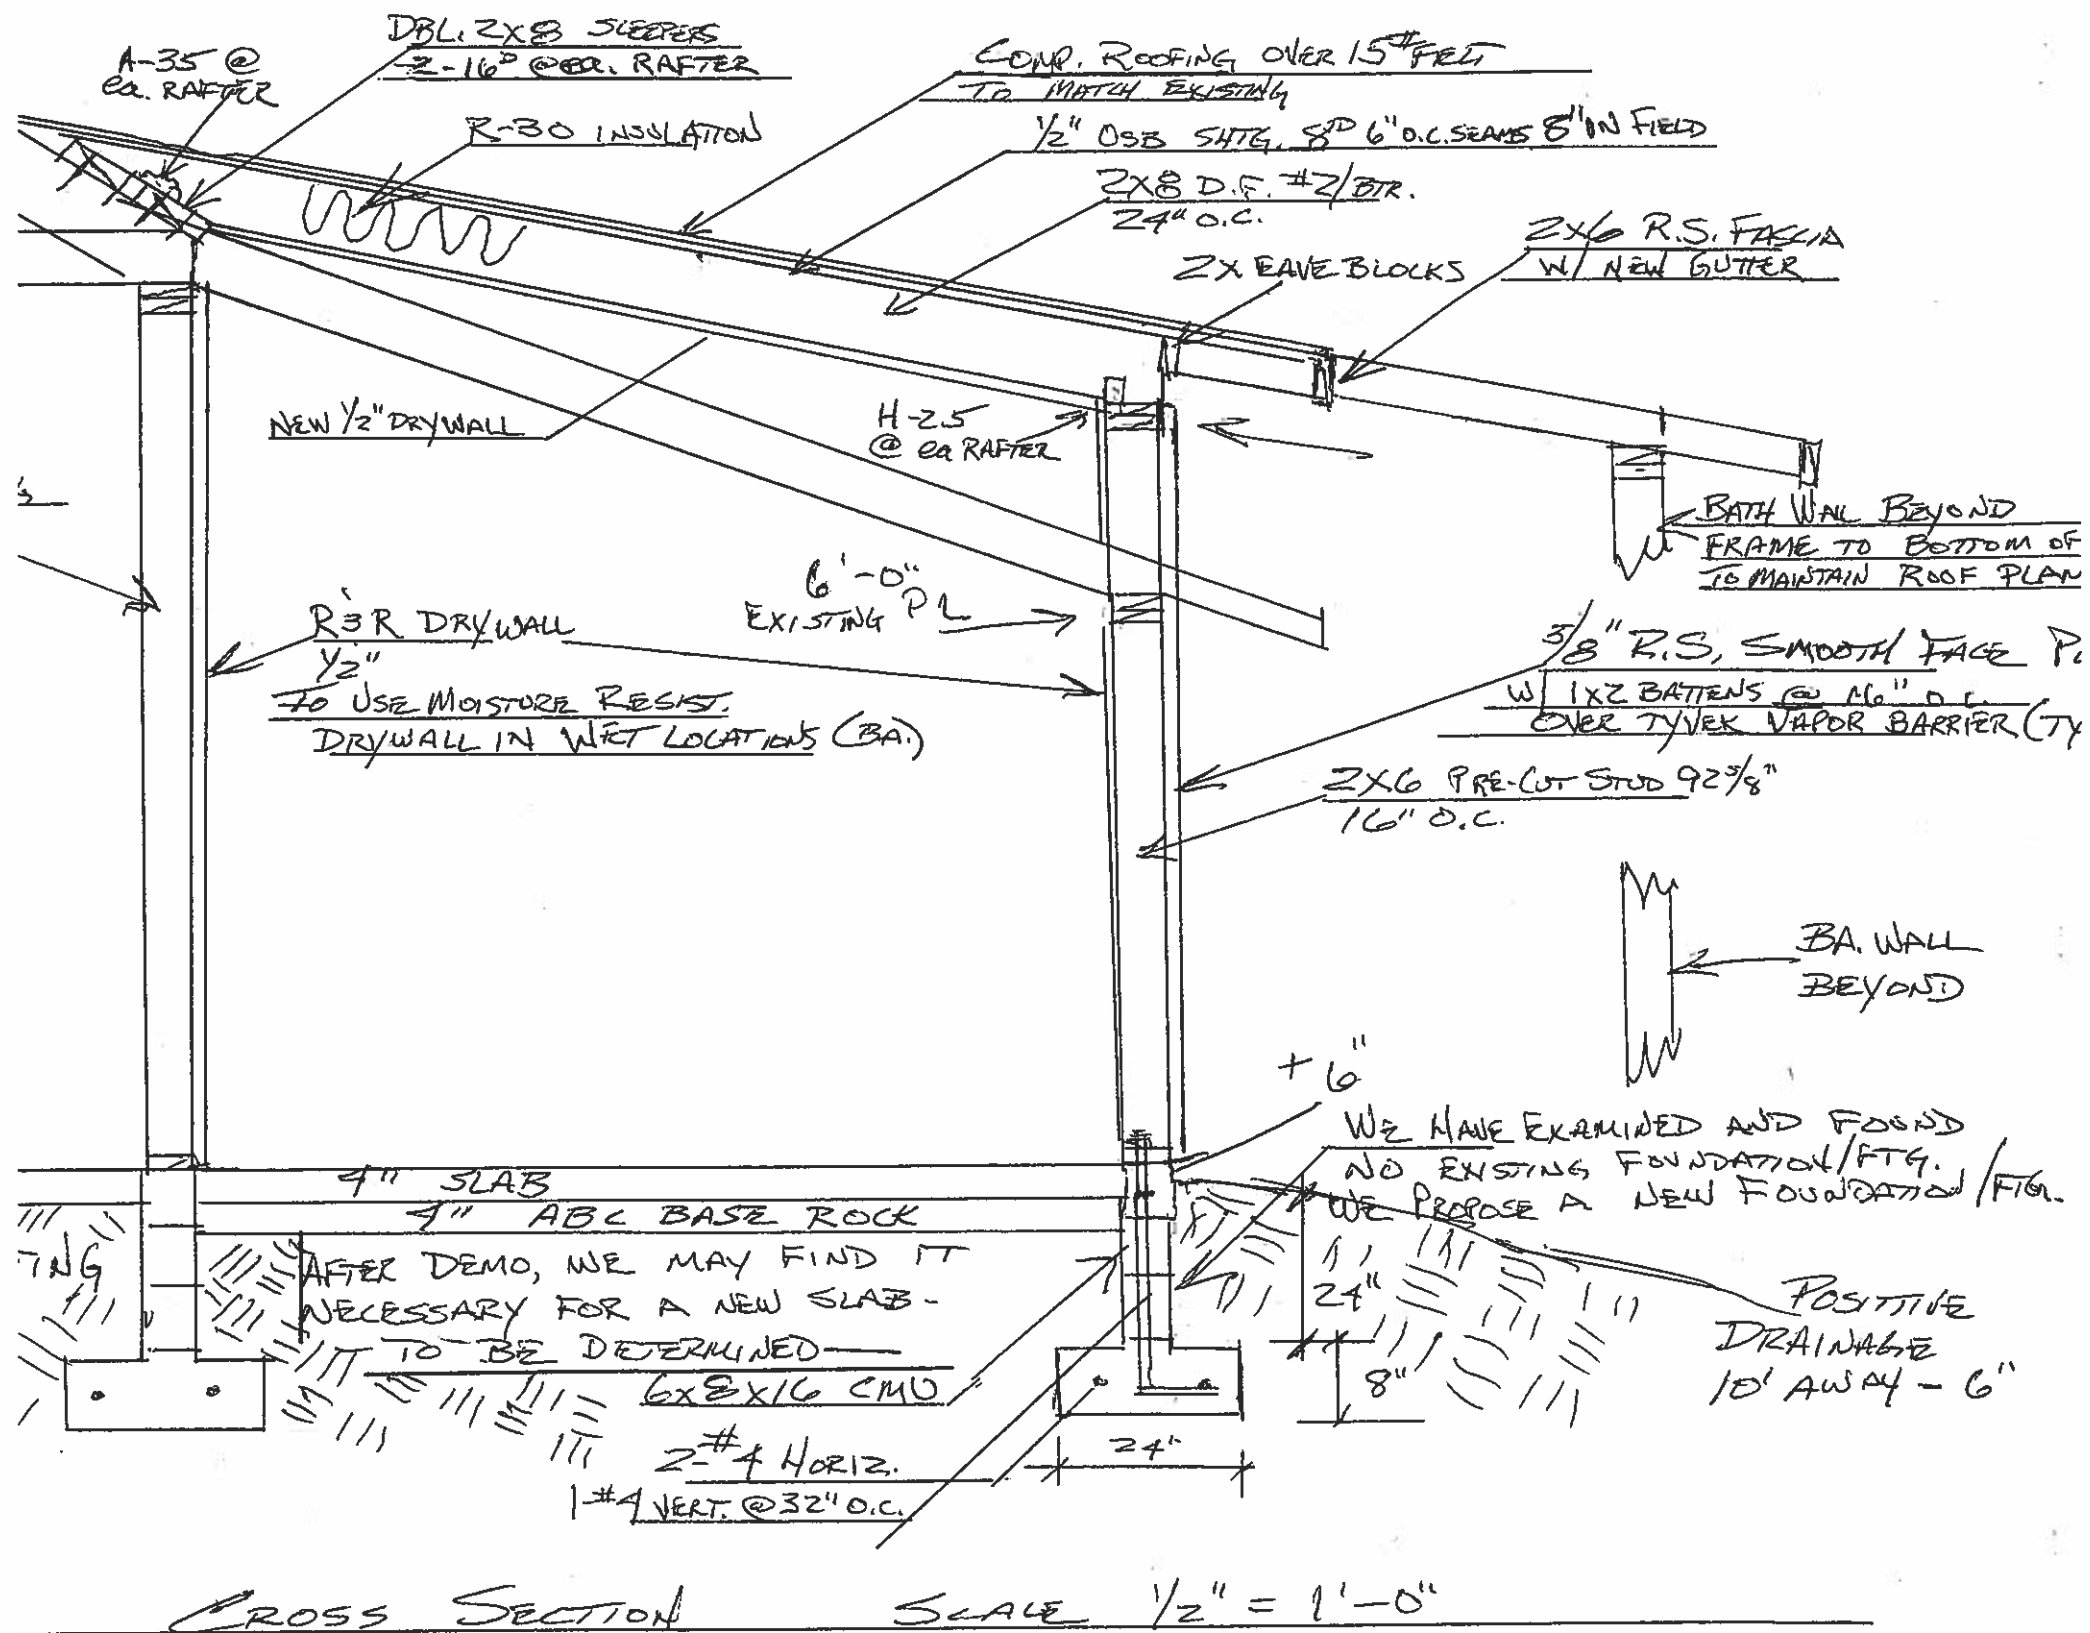 A-35 @
ea. RAFTER
DBL. 2X8 SLEEPERS
2-16ᴰ @ ea. RAFTER
R-30 INSULATION
COMP. ROOFING OVER 15# FELT
TO MATCH EXISTING
1/2" OSB SHTG. 8ᴰ 6" O.C. SEAMS 8" IN FIELD
2X8 D.F. #2/BTR.
24" O.C.
2X EAVE BLOCKS
2X6 R.S. FASCIA
W/ NEW GUTTER
NEW 1/2" DRYWALL
H-2.5
@ ea RAFTER
BATH WALL BEYOND
FRAME TO BOTTOM OF
TO MAINTAIN ROOF PLAN
6'-0"
EXISTING PL
R&R DRYWALL
1/2"
TO USE MOISTURE RESIST.
DRYWALL IN WET LOCATIONS (BA.)
5/8" R.S. SMOOTH FACE
W/ 1X2 BATTENS @ 16" O.C.
OVER TYVEK VAPOR BARRIER (TY
2X6 PRE-CUT STUD 92 5/8"
16" O.C.
BA. WALL
BEYOND
+6"
WE HAVE EXAMINED AND FOUND
NO EXISTING FOUNDATION/FTG.
WE PROPOSE A NEW FOUNDATION/FTG.
4" SLAB
4" ABC BASE ROCK
TING
AFTER DEMO, WE MAY FIND IT
NECESSARY FOR A NEW SLAB -
TO BE DETERMINED
6x8x16 CMU
24"
8"
POSITIVE
DRAINAGE
10' AWAY - 6"
2-#4 HORIZ.
1-#4 VERT. @ 32" O.C.
24"
CROSS SECTION SCALE 1/2" = 1'-0"